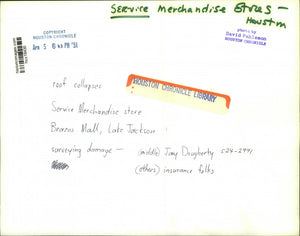 SERVICE Merchandise Stores -
Houston
COPYRIGHT
HOUSTON CHRONICLE
photo by
David Fahleson
HOUSTON CHRONICLE
HOUSTON CHRONICLE LIBRARY
roof collapses
Service Merchandise store
Brazos Mall, Lake Jackson
surveying damage - (middle) Jay Dougherty 524-2991
(others) insurance folks